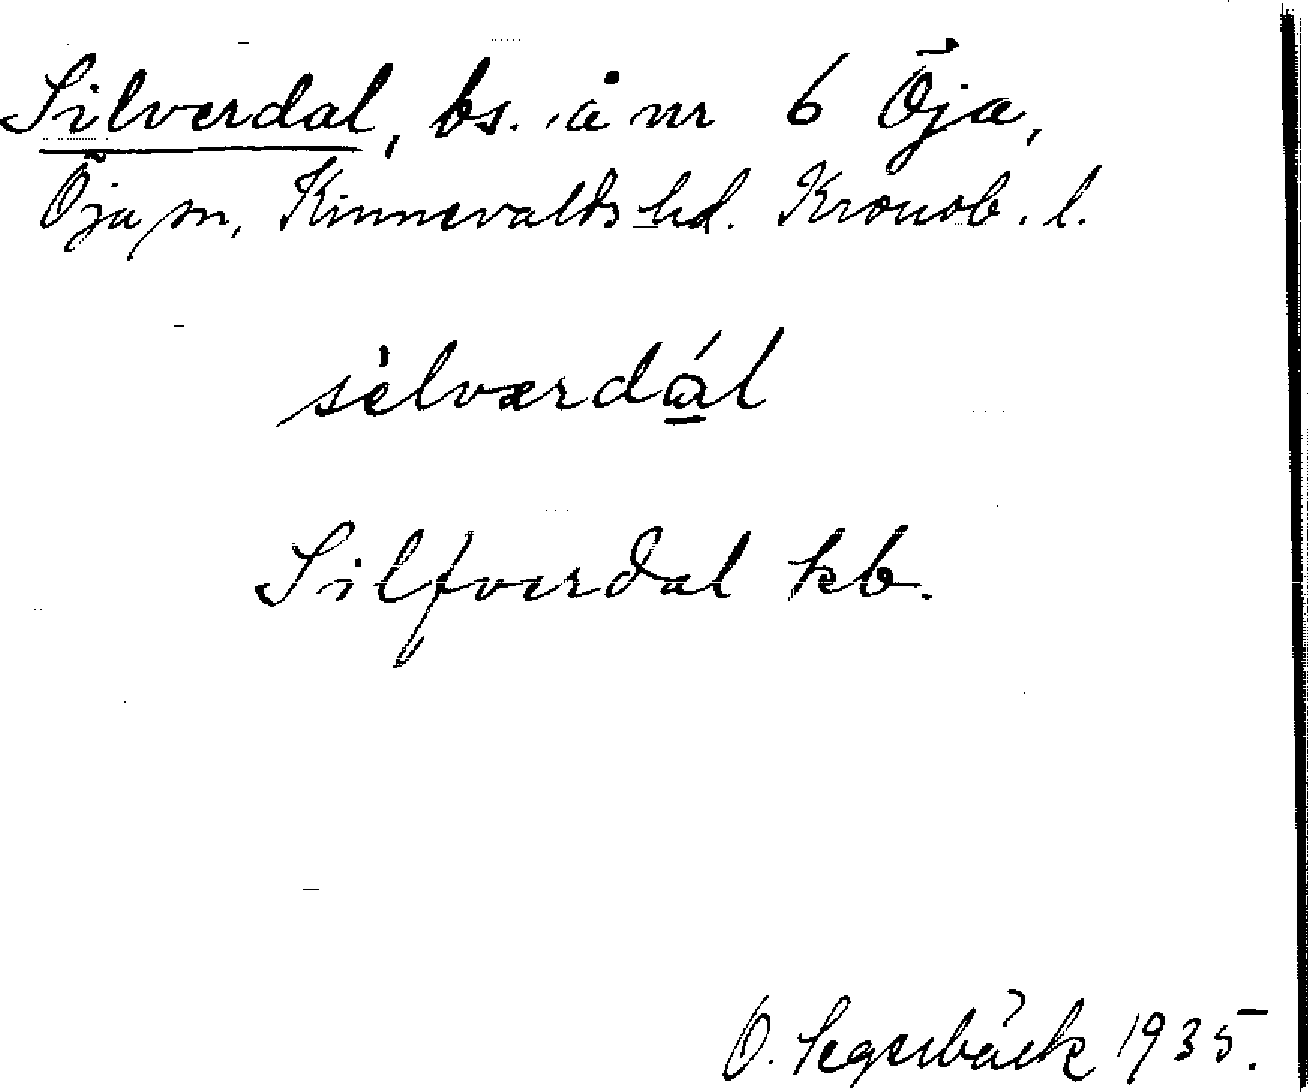 Silverdal, bs. å nr 6 Öja,
Öja sn, Kinnevalds hd. Kronob. l.
sèlværdál
Silfverdal kb.
O. Segerbäck 1935.